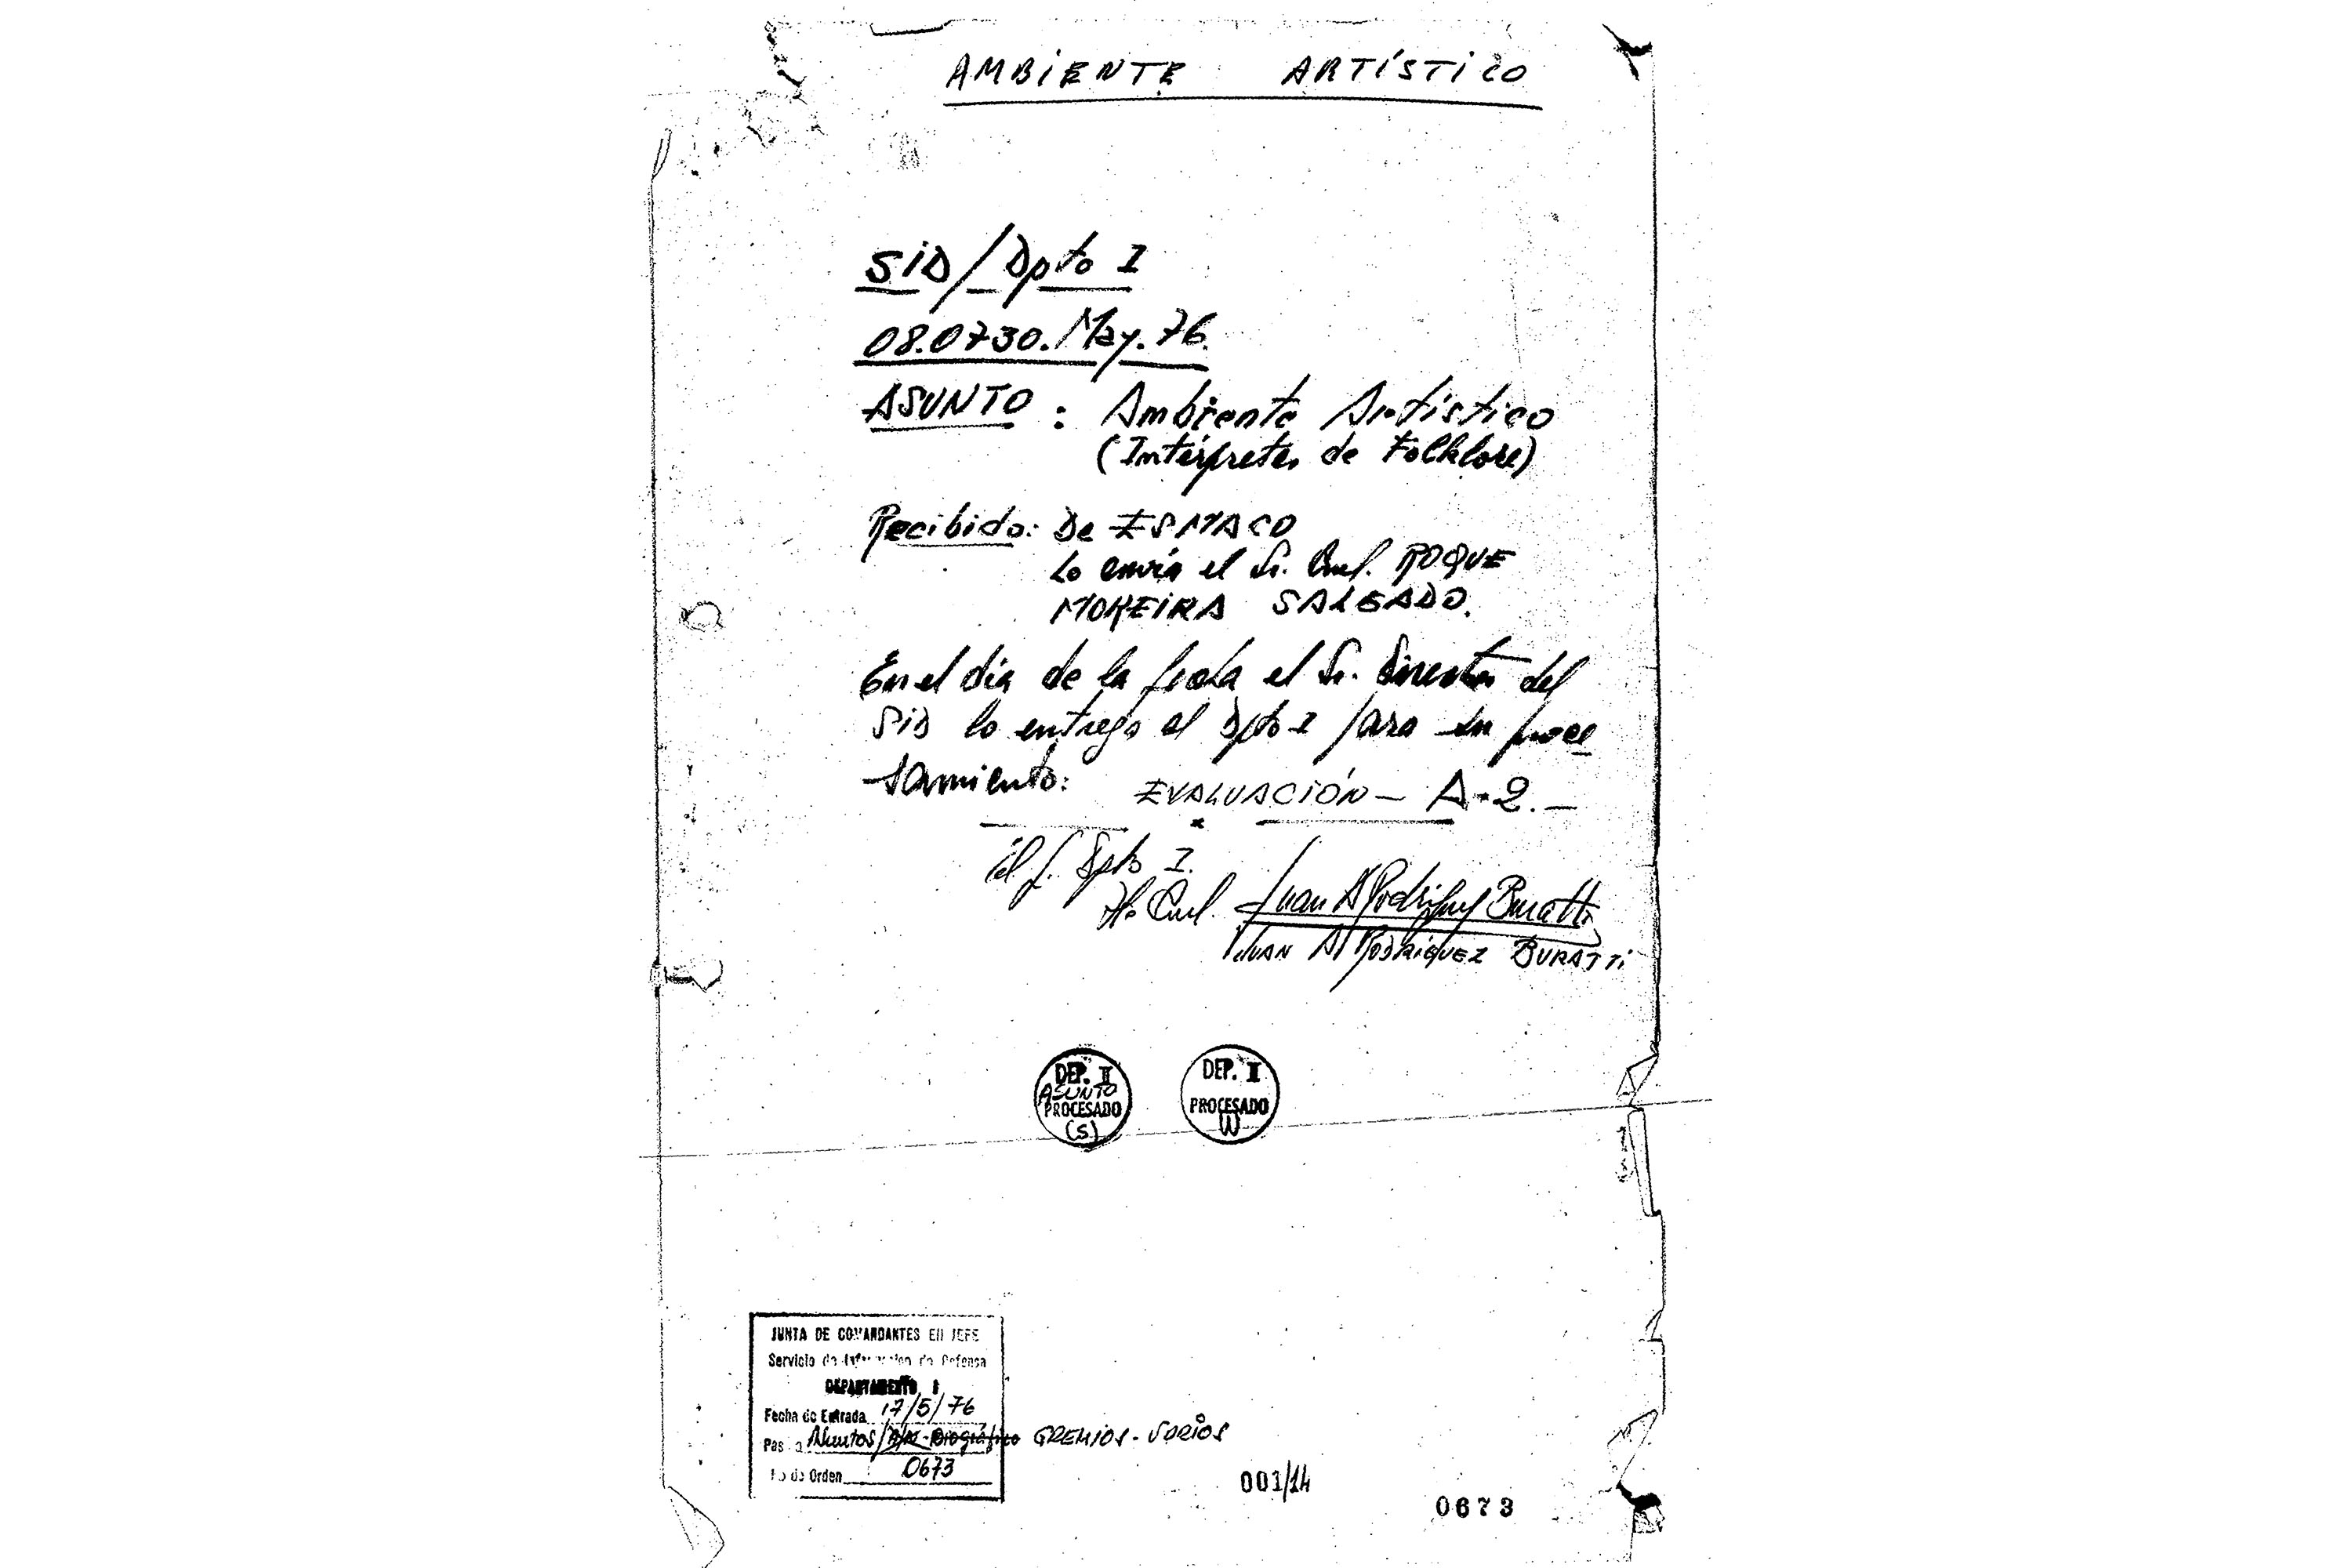 AMBIENTE ARTÍSTICO
SID/Dpto I
08.0730.May.76.
ASUNTO: Ambiente Artístico
(Intérpretes de Folklore)
Recibido: De ESMACO
Lo envía el Sr. Cnel. ROQUE
MOREIRA SALGADO.
En el día de la fecha el Sr. Director del
SID lo entregó al Dpto I para su proce
samiento:
EVALUACIÓN - A-2.-
El J. Dpto I.
Cnel. Juan A Rodriguez Buratti
JUAN A RODRIGUEZ BURATTI
DEP. II
ASUNTO
PROCESADO
(S)
DEP. II
PROCESADO
JUNTA DE COMANDANTES EN JEFE
Servicio de Información de Defensa
DEPARTAMENTO I
Fecha de Entrada 17/5/76
Pas a Asuntos/ GREMIOS-
No de Orden 0673
001/14
0673